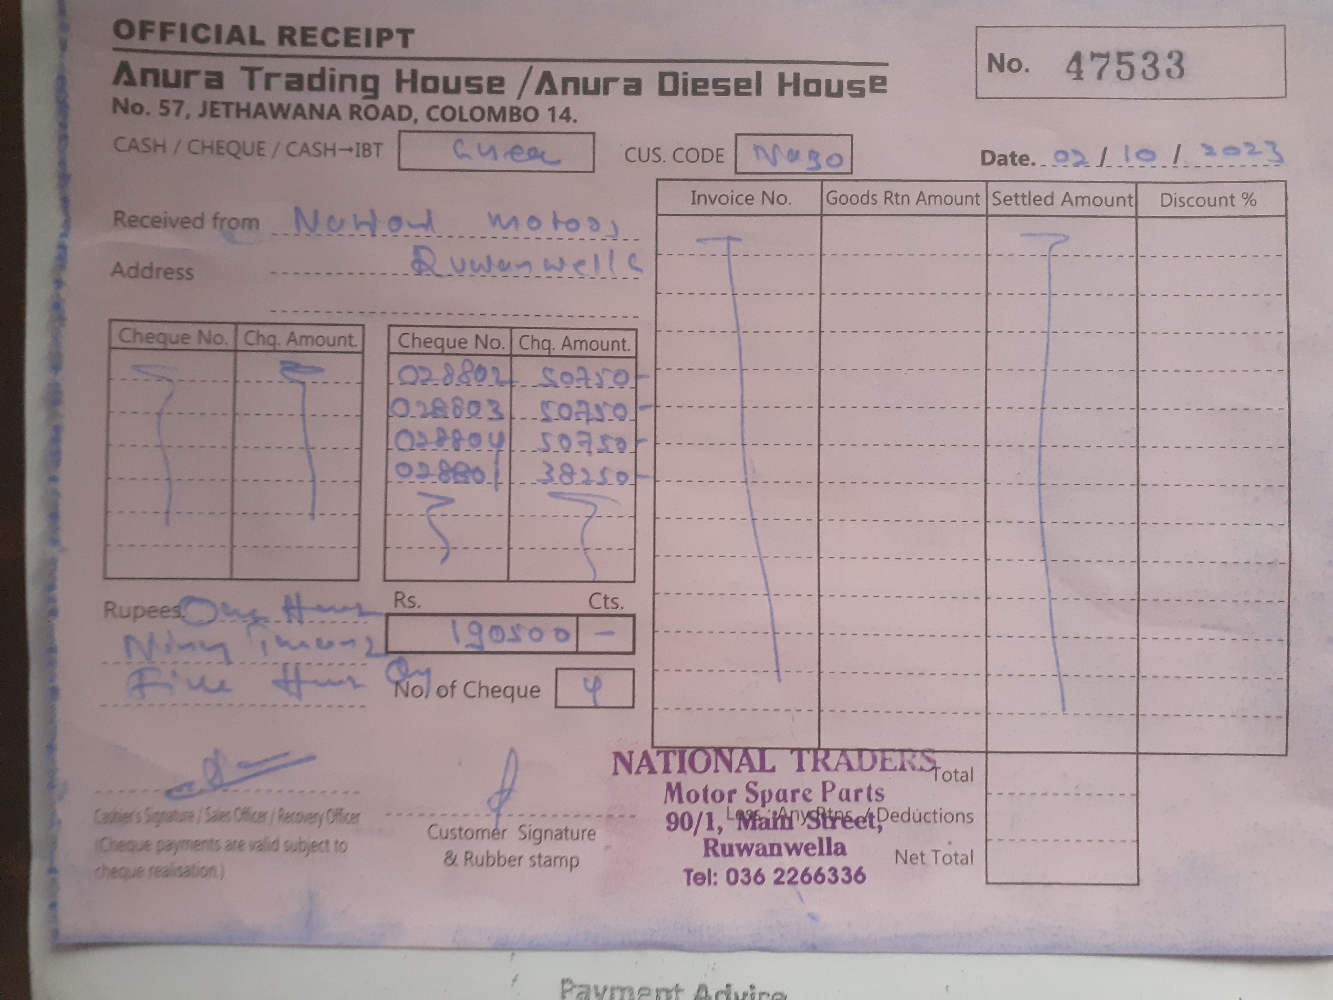 OFFICIAL RECEIPT
Anura Trading House /Anura Diesel House
No. 57, JETHAWANA ROAD, COLOMBO 14.
No. 47533
CASH / CHEQUE / CASH→IBT
CUS. CODE
Date. 02 / 10 / 2023
Received from Motors
Address Ruwanwella
Cheque No. Chq. Amount.
Cheque No. Chq. Amount.
028802 50750-
028803 50750-
028804 50750-
028801 38250-
Invoice No. Goods Rtn Amount Settled Amount Discount %
Rupees One
Rs. Cts.
190500 -
Five
No. of Cheque 4
Cashier's Signature / Sales Officer / Recovery Officer
(Cheque payments are valid subject to
cheque realisation.)
Customer Signature
& Rubber stamp
NATIONAL TRADERS
Motor Spare Parts
90/1, Main Street,
Ruwanwella
Tel: 036 2266336
Total
Less: Any Rtns / Deductions
Net Total
Payment Advice